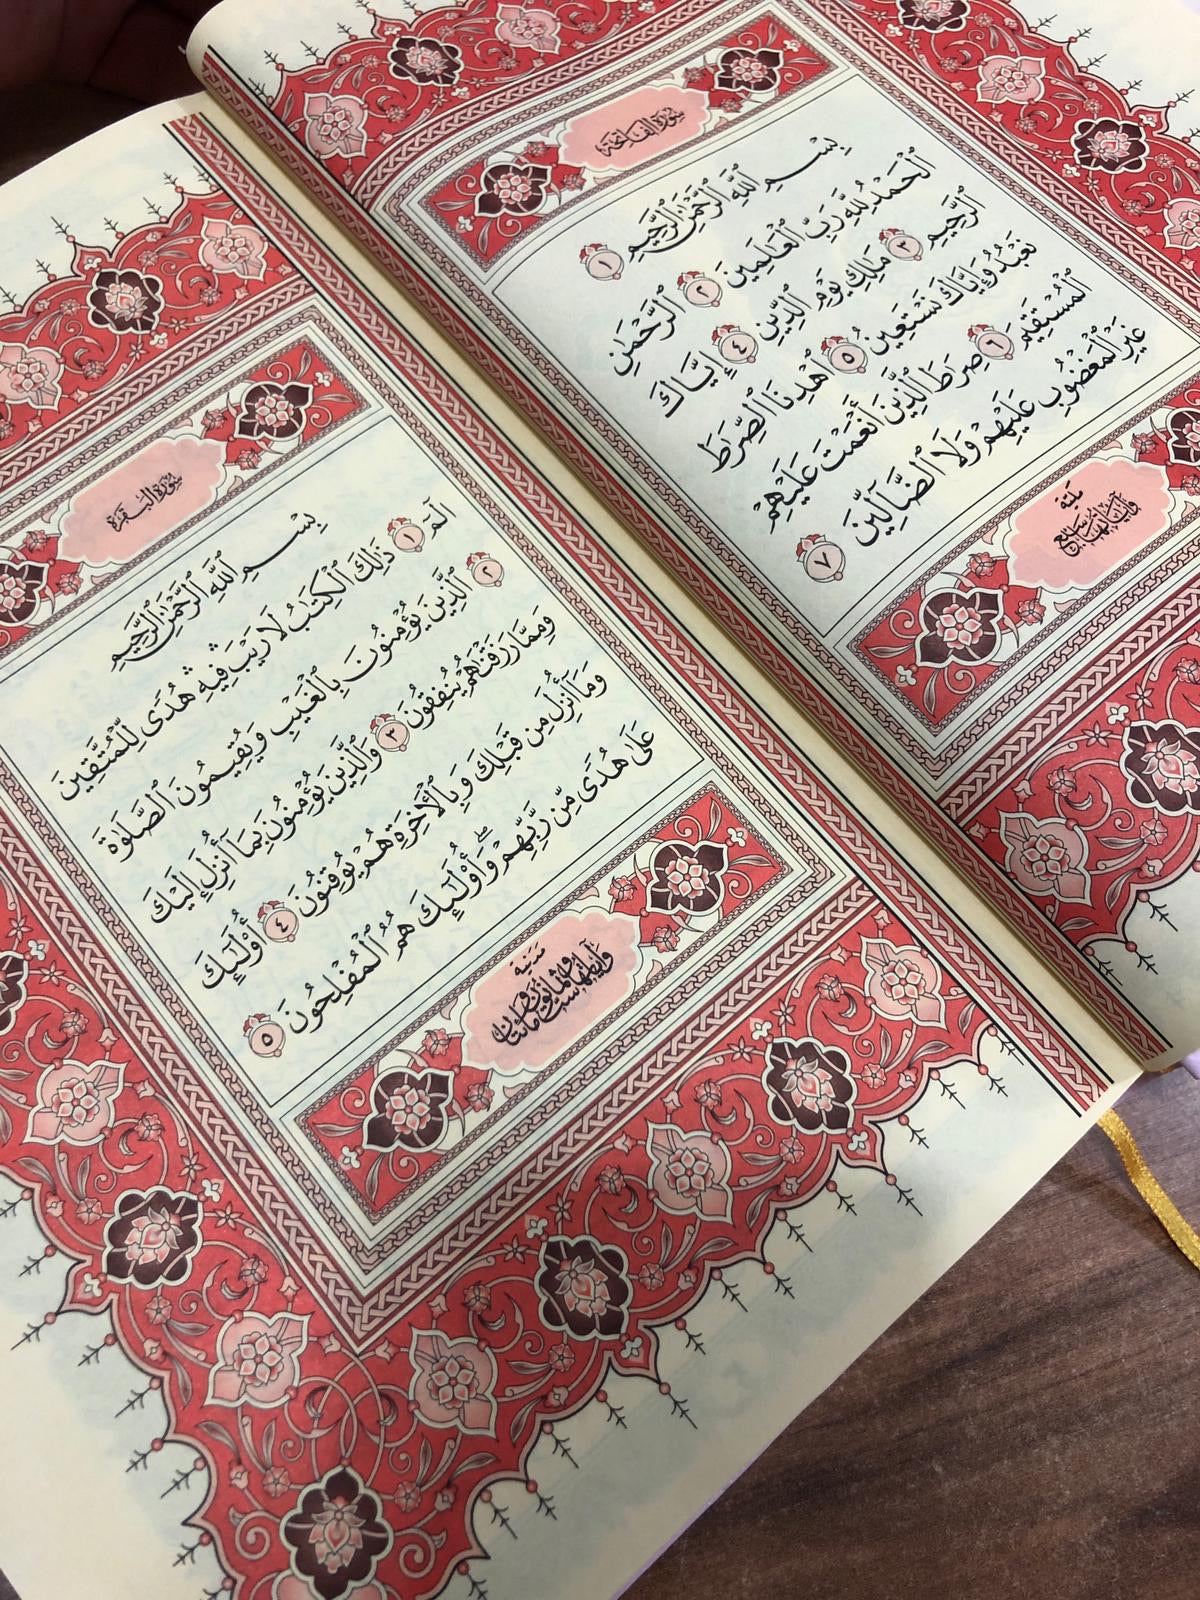 سورة الفاتحة
بِسْمِ ٱللَّهِ ٱلرَّحْمَٰنِ ٱلرَّحِيمِ ١
ٱلْحَمْدُ لِلَّهِ رَبِّ ٱلْعَٰلَمِينَ ٢ ٱلرَّحْمَٰنِ
ٱلرَّحِيمِ ٣ مَٰلِكِ يَوْمِ ٱلدِّينِ ٤ إِيَّاكَ
نَعْبُدُ وَإِيَّاكَ نَسْتَعِينُ ٥ ٱهْدِنَا ٱلصِّرَٰطَ
ٱلْمُسْتَقِيمَ ٦ صِرَٰطَ ٱلَّذِينَ أَنْعَمْتَ عَلَيْهِمْ
غَيْرِ ٱلْمَغْضُوبِ عَلَيْهِمْ وَلَا ٱلضَّآلِّينَ ٧
وآياتها سبع
سورة البقرة
بِسْمِ ٱللَّهِ ٱلرَّحْمَٰنِ ٱلرَّحِيمِ
الٓمٓ ١ ذَٰلِكَ ٱلْكِتَٰبُ لَا رَيْبَ ۛ فِيهِ ۛ هُدًى لِّلْمُتَّقِينَ
٢ ٱلَّذِينَ يُؤْمِنُونَ بِٱلْغَيْبِ وَيُقِيمُونَ ٱلصَّلَوٰةَ
وَمِمَّا رَزَقْنَٰهُمْ يُنفِقُونَ ٣ وَٱلَّذِينَ يُؤْمِنُونَ بِمَآ أُنزِلَ إِلَيْكَ
وَمَآ أُنزِلَ مِن قَبْلِكَ وَبِٱلْأَخِرَةِ هُمْ يُوقِنُونَ ٤ أُو۟لَٰٓئِكَ
عَلَىٰ هُدًى مِّن رَّبِّهِمْ ۖ وَأُو۟لَٰٓئِكَ هُمُ ٱلْمُفْلِحُونَ ٥
مدنية
وآياتها ست وثمانون ومائتان